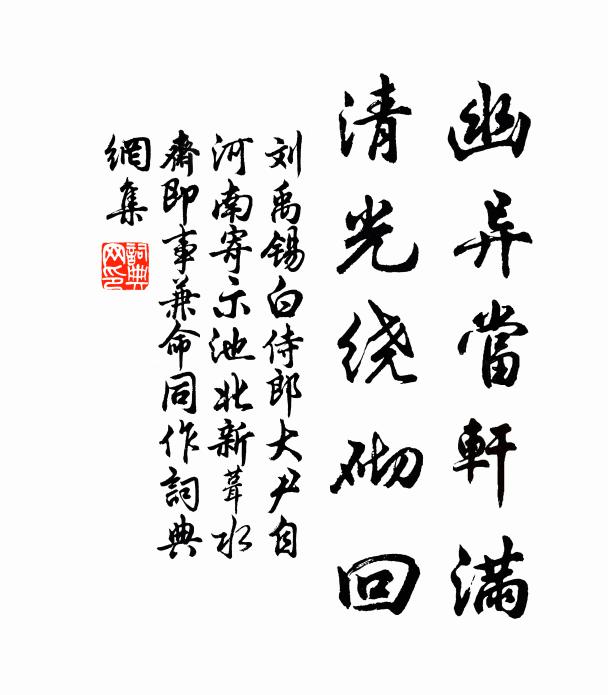 幽异當軒滿
清光绕砌回
刘禹锡白侍郎大尹自
河南寄示池北新葺水
齋即事兼命同作詞典
網集
詞典
网印